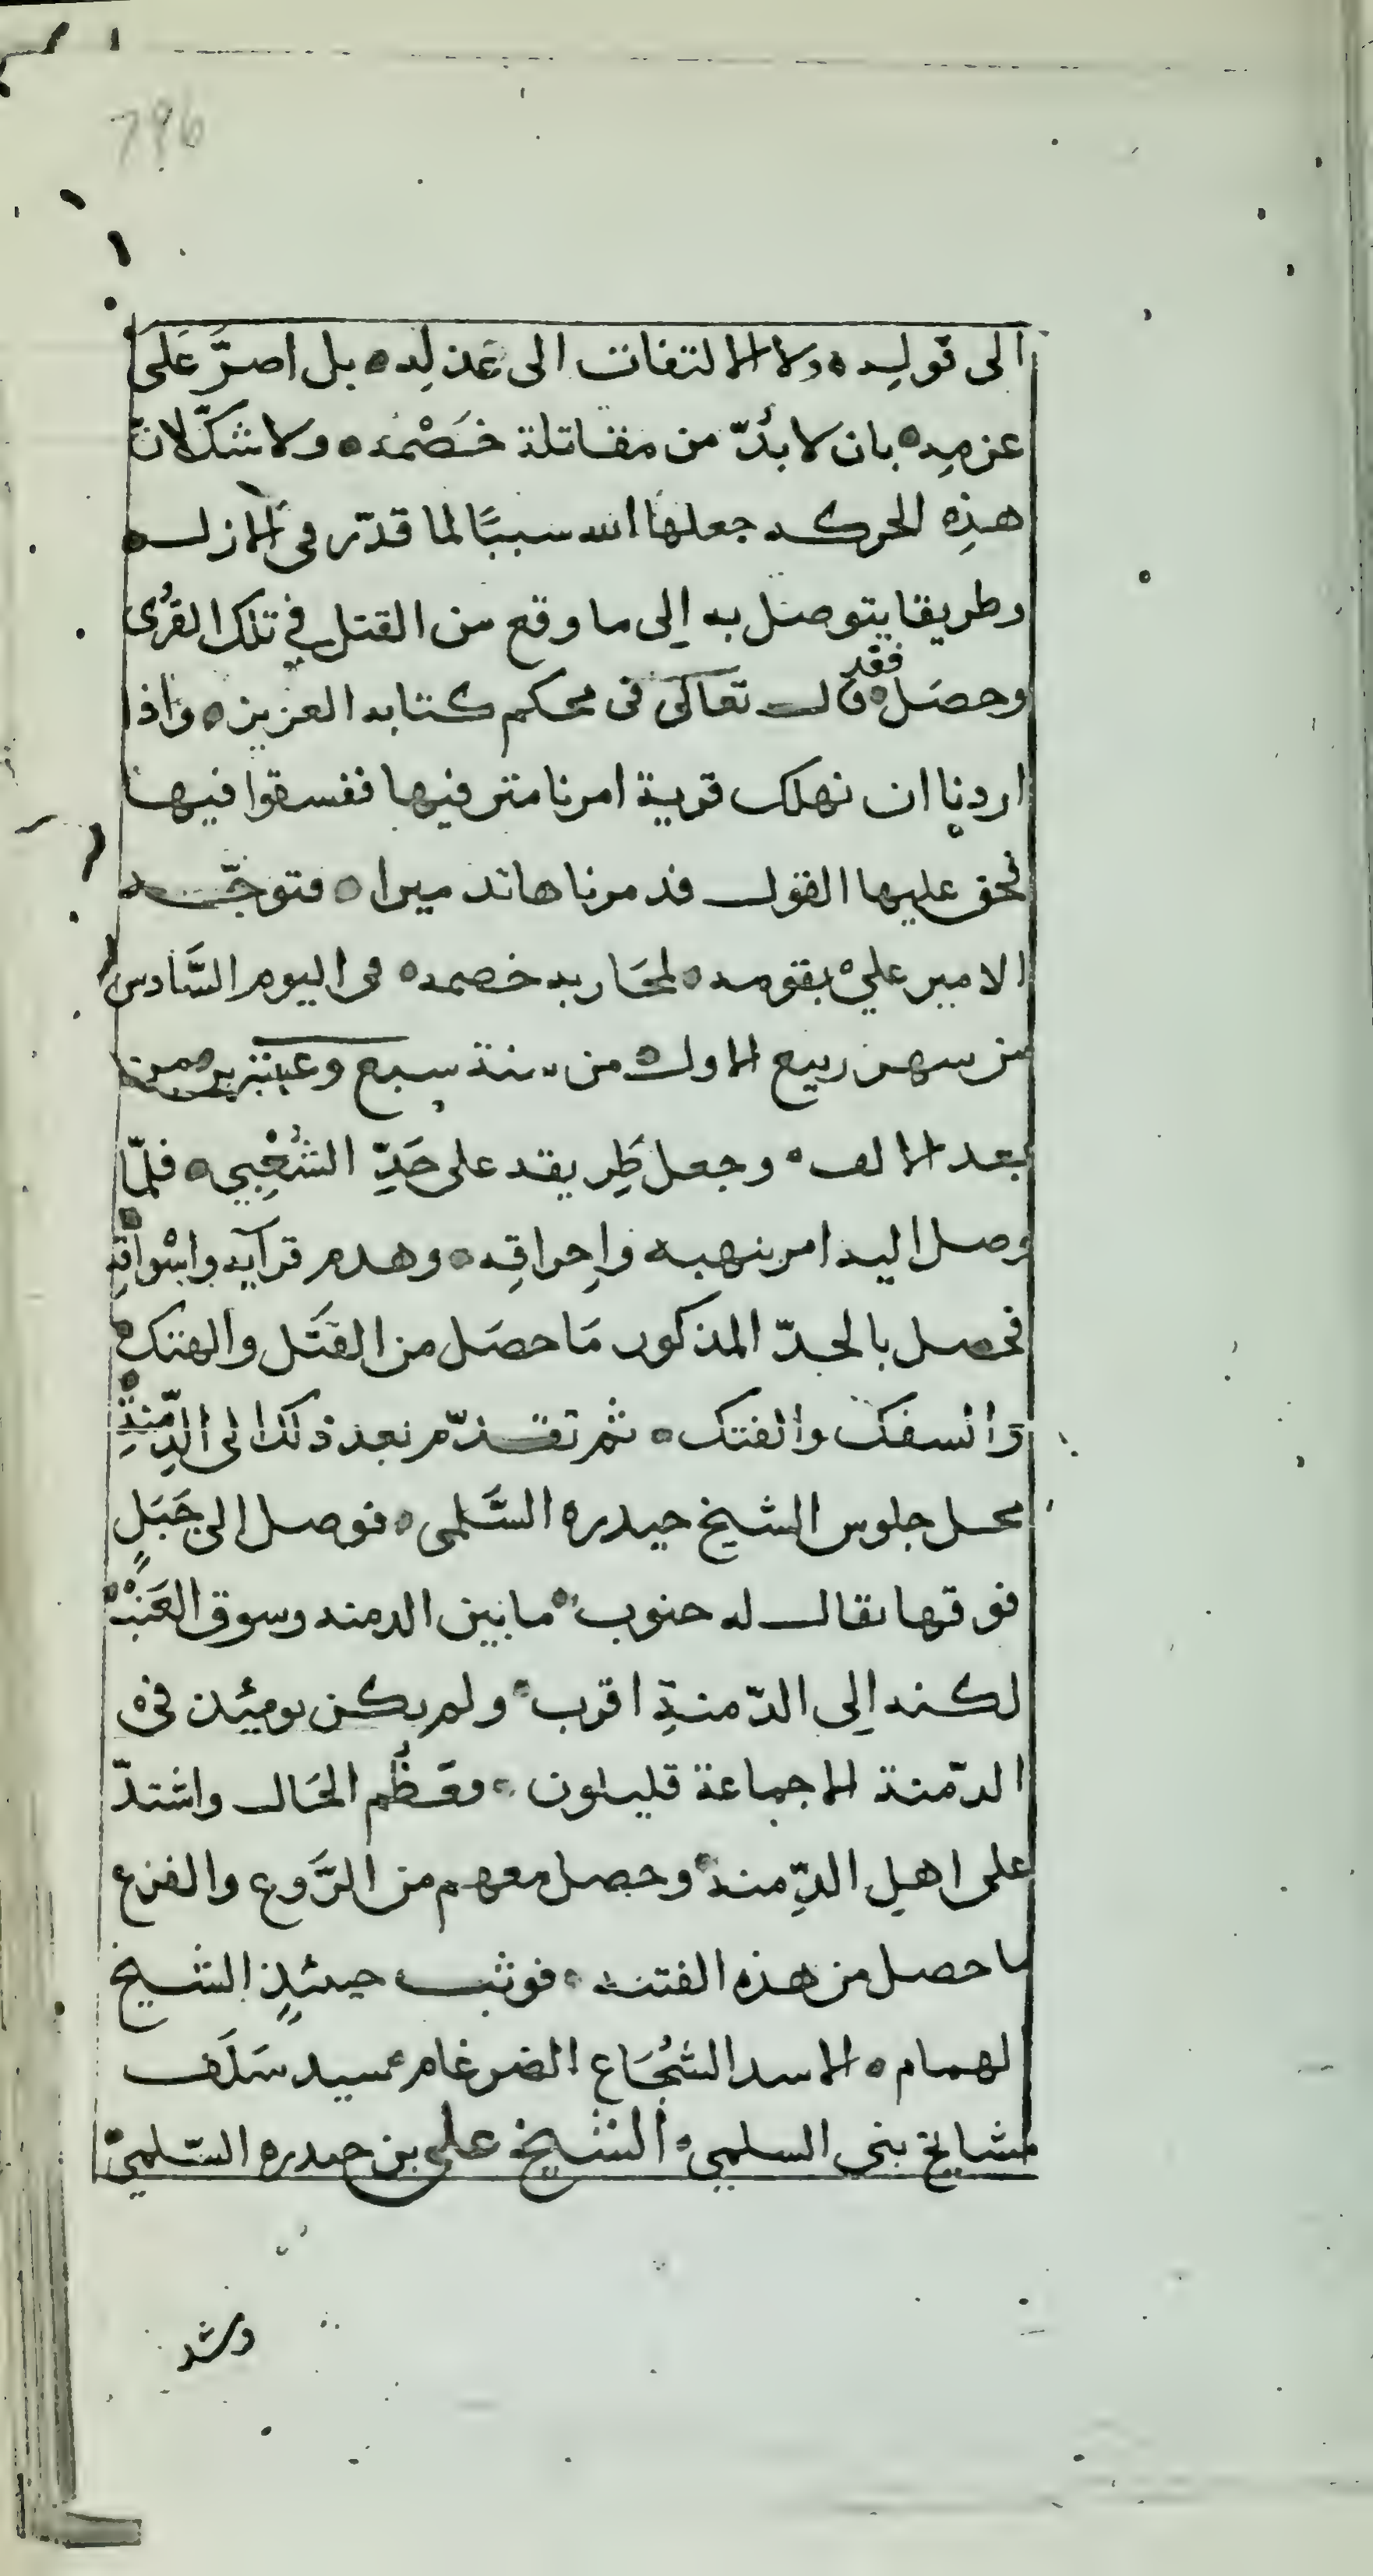 796
الى قوله ولا الالتفات الى عذله بل اصرَّ عَلَى
عزمِه بان لا بدّ من مقاتلة خَصْمه ولا شكّ لانّ
هذِه الحركه جعلها الله سببًا لما قدّر في الازل
وطريقا يتوصل به إلى ما وقع من القتل في تلك القُرى
وحصَل فقد قال تعالى في محكم كتابه العزيز واذا
اردنا ان نهلك قرية امرنا مترفيها ففسقوا فيها
فحق عليها القول فدمرناها تدميرا فتوجّه
الامير علي بقومه لمحَاربه خصمه في اليوم السَّادس
من شهر ربيع الاول من سنة سبع
بعد الالف وجعل طَرِيقه على حَدِّ الشُّعْيبي فلمّا
وصل اليه امر بنهبه واِحراقِه وهدم قرايه واسْواقِه
فحصل بالحدّ المذكور مَا حصَل من القَتْل والهتك
والسفك والفتك ثم تقدّم بعد ذلك الى الدِّمْنةِ
محل جلوس الشيخ حيدره السَّلمي فوصل الى جَبَلٍ
فوقها يقال له حنوب ما بين الدمنه وسوق
لكنه اِلى الدّمنةِ اقرب ولم يكن يومئذ في
الدّمنة الا جماعة قليلون فعَظُم الحَال واشتدّ
على اهل الدِّمنه وحصل معهم من الرَّوع والفزع
ما حصل من هذه الفتنه فوثب حينئذٍ الشيخ
الهمام الاسد الشُجَاع الضرغام سيد سَلَف
مشايخ بني السلمي الشيخ علي بن حيدره السّلميّ